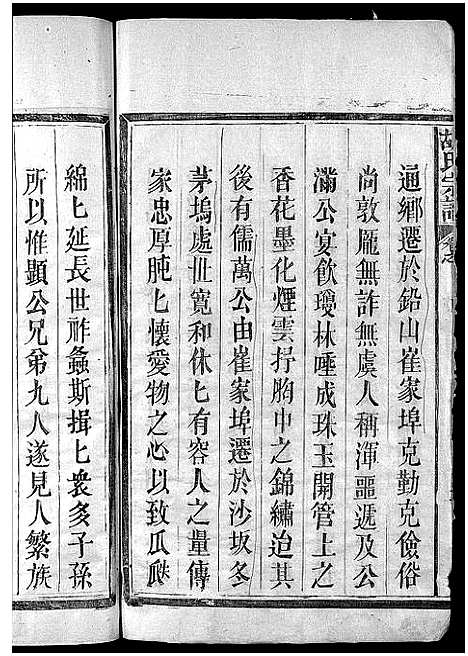 胡氏宗譜
卷之
通鄉遷於鉛山崔家埠克勤克儉俗
尚敦厖無詐無虞人稱渾噩遞及公
滿公宴飲瓊林唾成珠玉開管上之
香花墨化煙雲抒胸中之錦繡迨其
後有儒萬公由崔家埠遷於沙坂冬
茅塢處世寬和休匕有容人之量傳
家忠厚肫匕懷愛物之心以致瓜瓞
綿匕延長世祚螽斯揖匕衆多子孫
所以惟顯公兄弟九人遂見人繁族